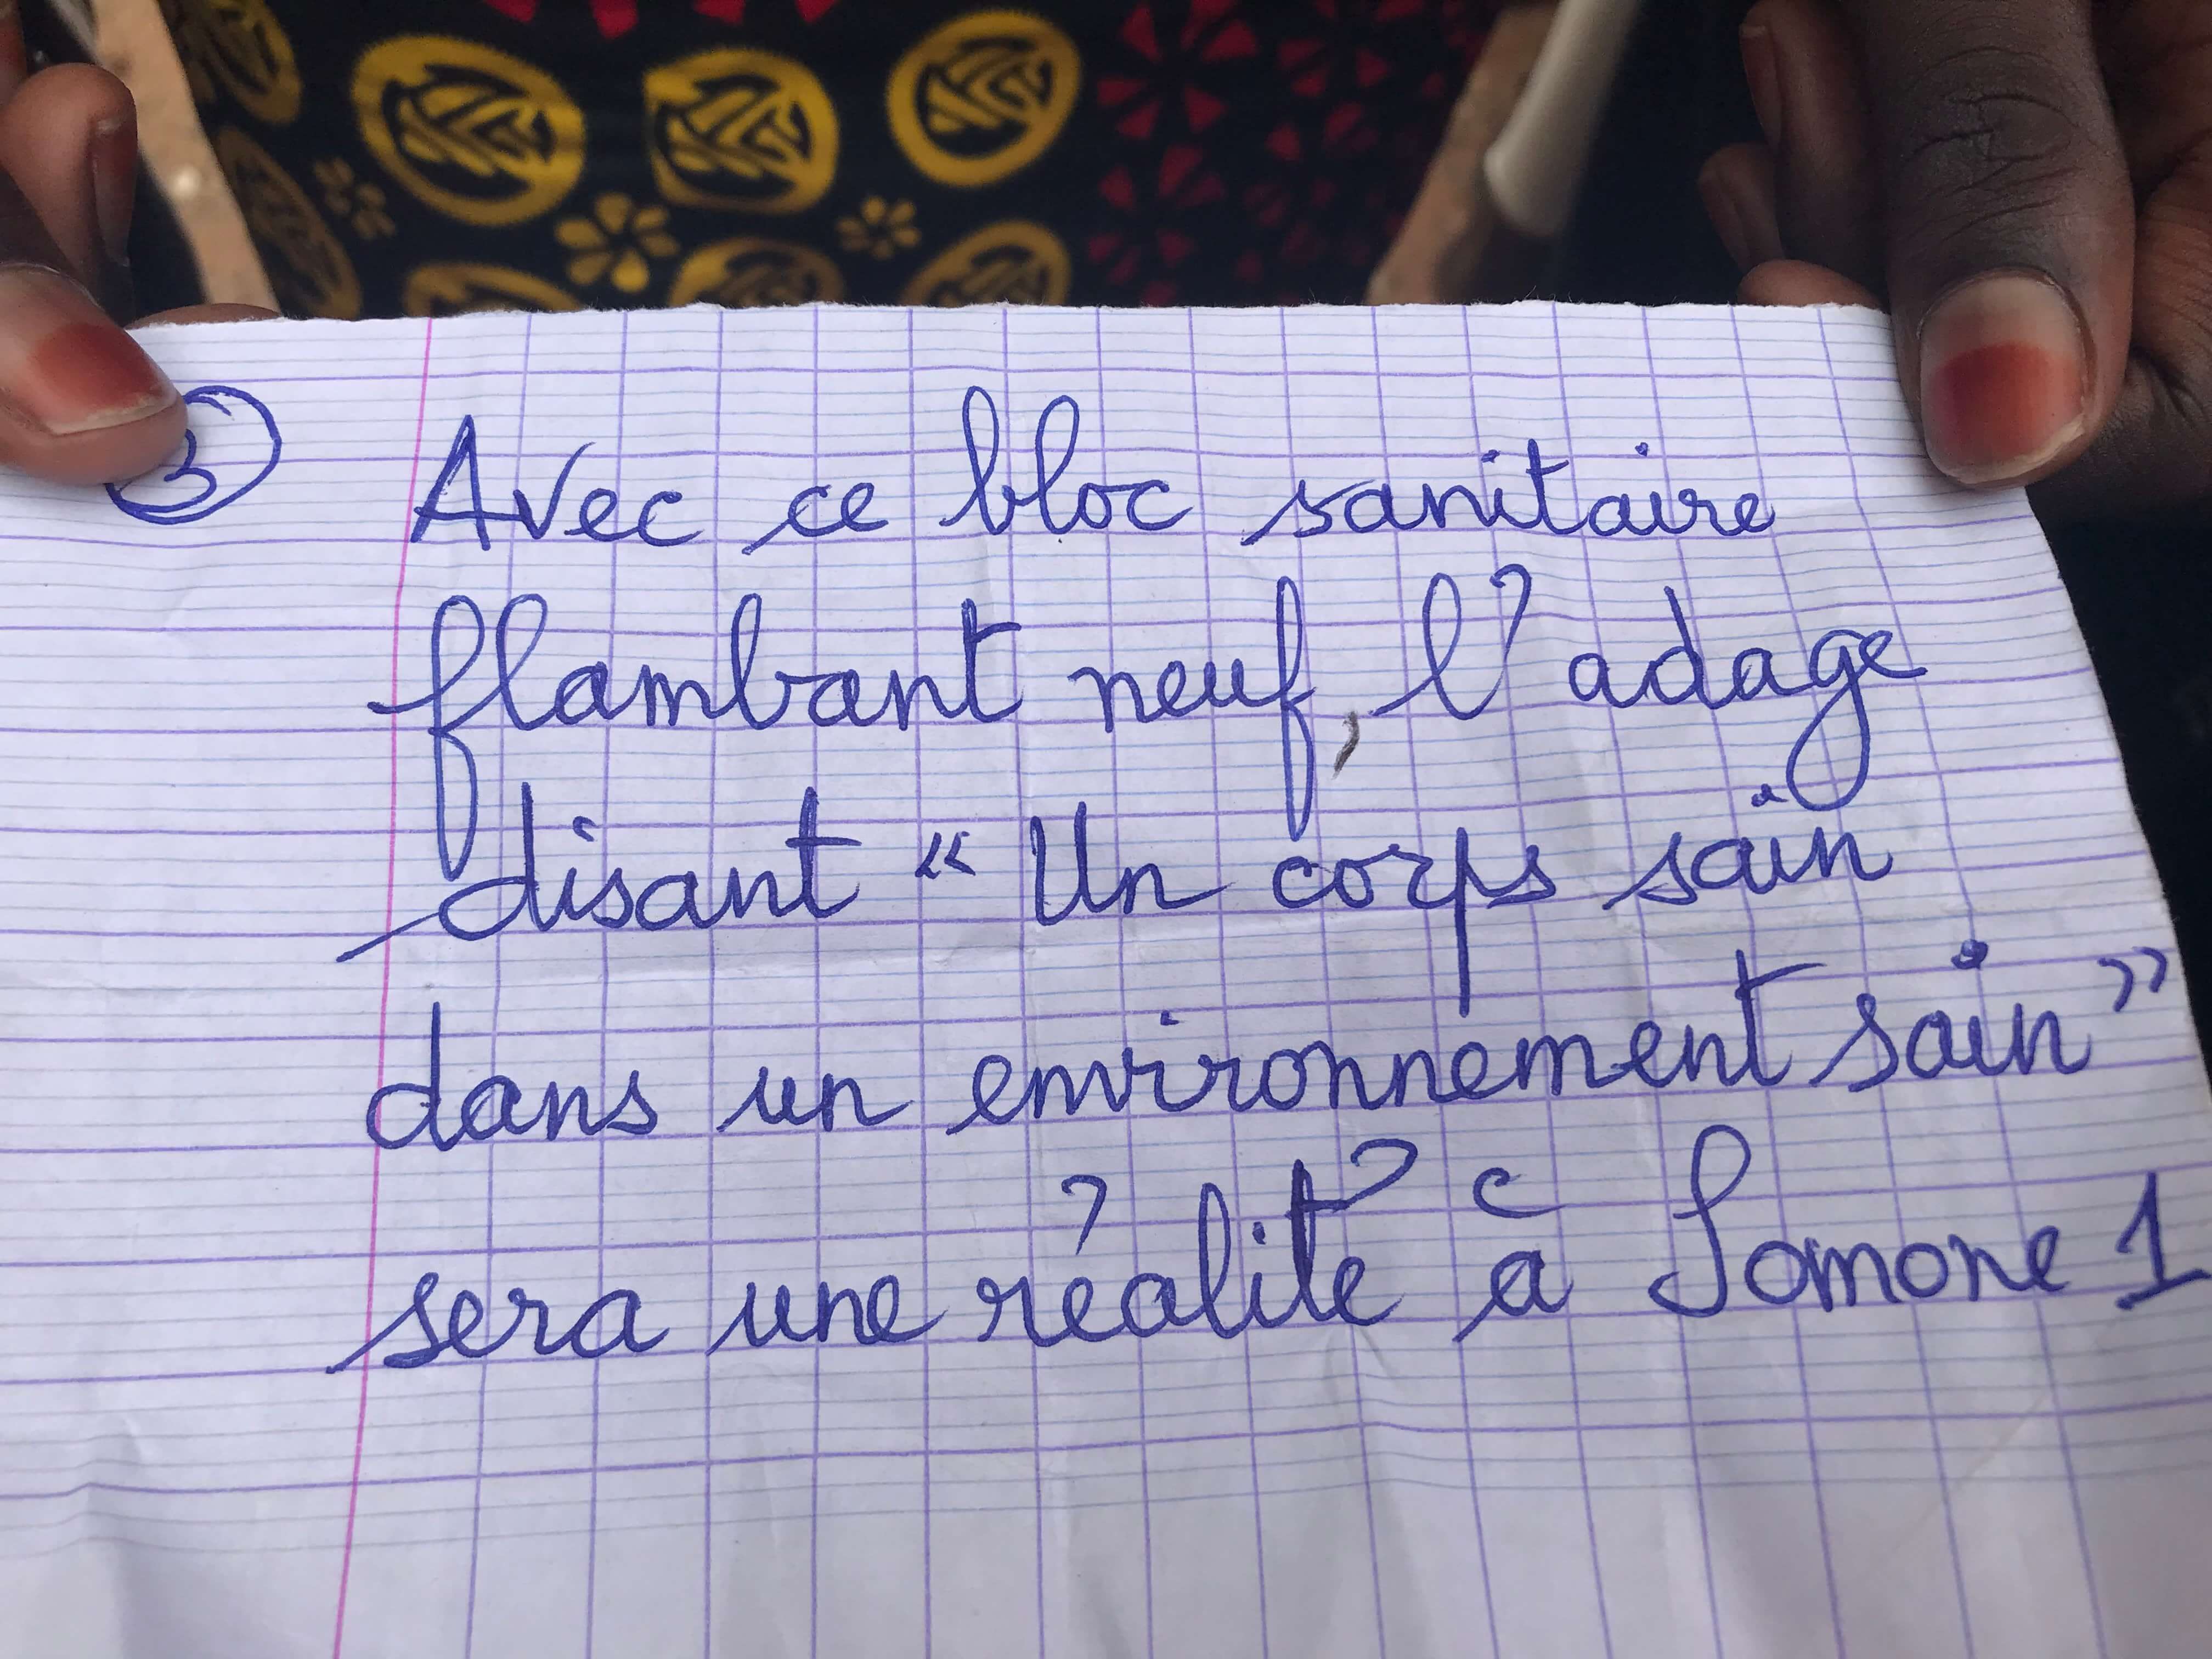 3 Avec ce bloc sanitaire
flambant neuf, l'adage
disant "Un corps sain
dans un environnement sain"
sera une réalité à Somone 1